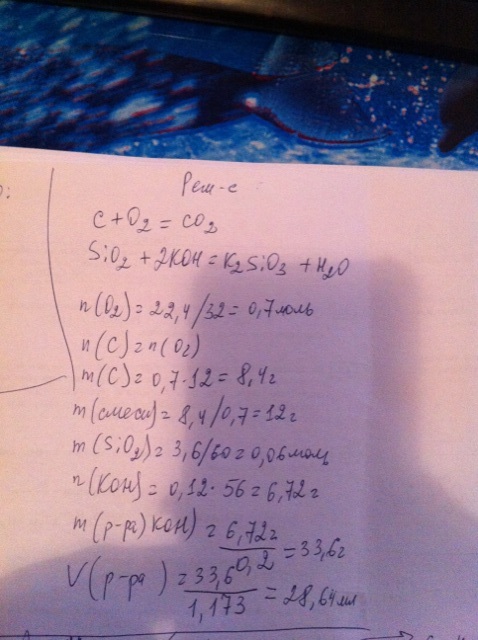 Реш-е
C + O2 = CO2
SiO2 + 2KOH = K2SiO3 + H2O
n(O2) = 22,4/32 = 0,7 моль
n(C) = n(O2)
m(C) = 0,7·12 = 8,4г
m(смеси) = 8,4/0,7 = 12г
m(SiO2) = 3,6/60 = 0,06 моль
n(KOH) = 0,12·56 = 6,72г
m(р-ра)KOH) = 6,72г / 0,2 = 33,6г
V(р-ра) = 33,6 / 1,173 = 28,64мл